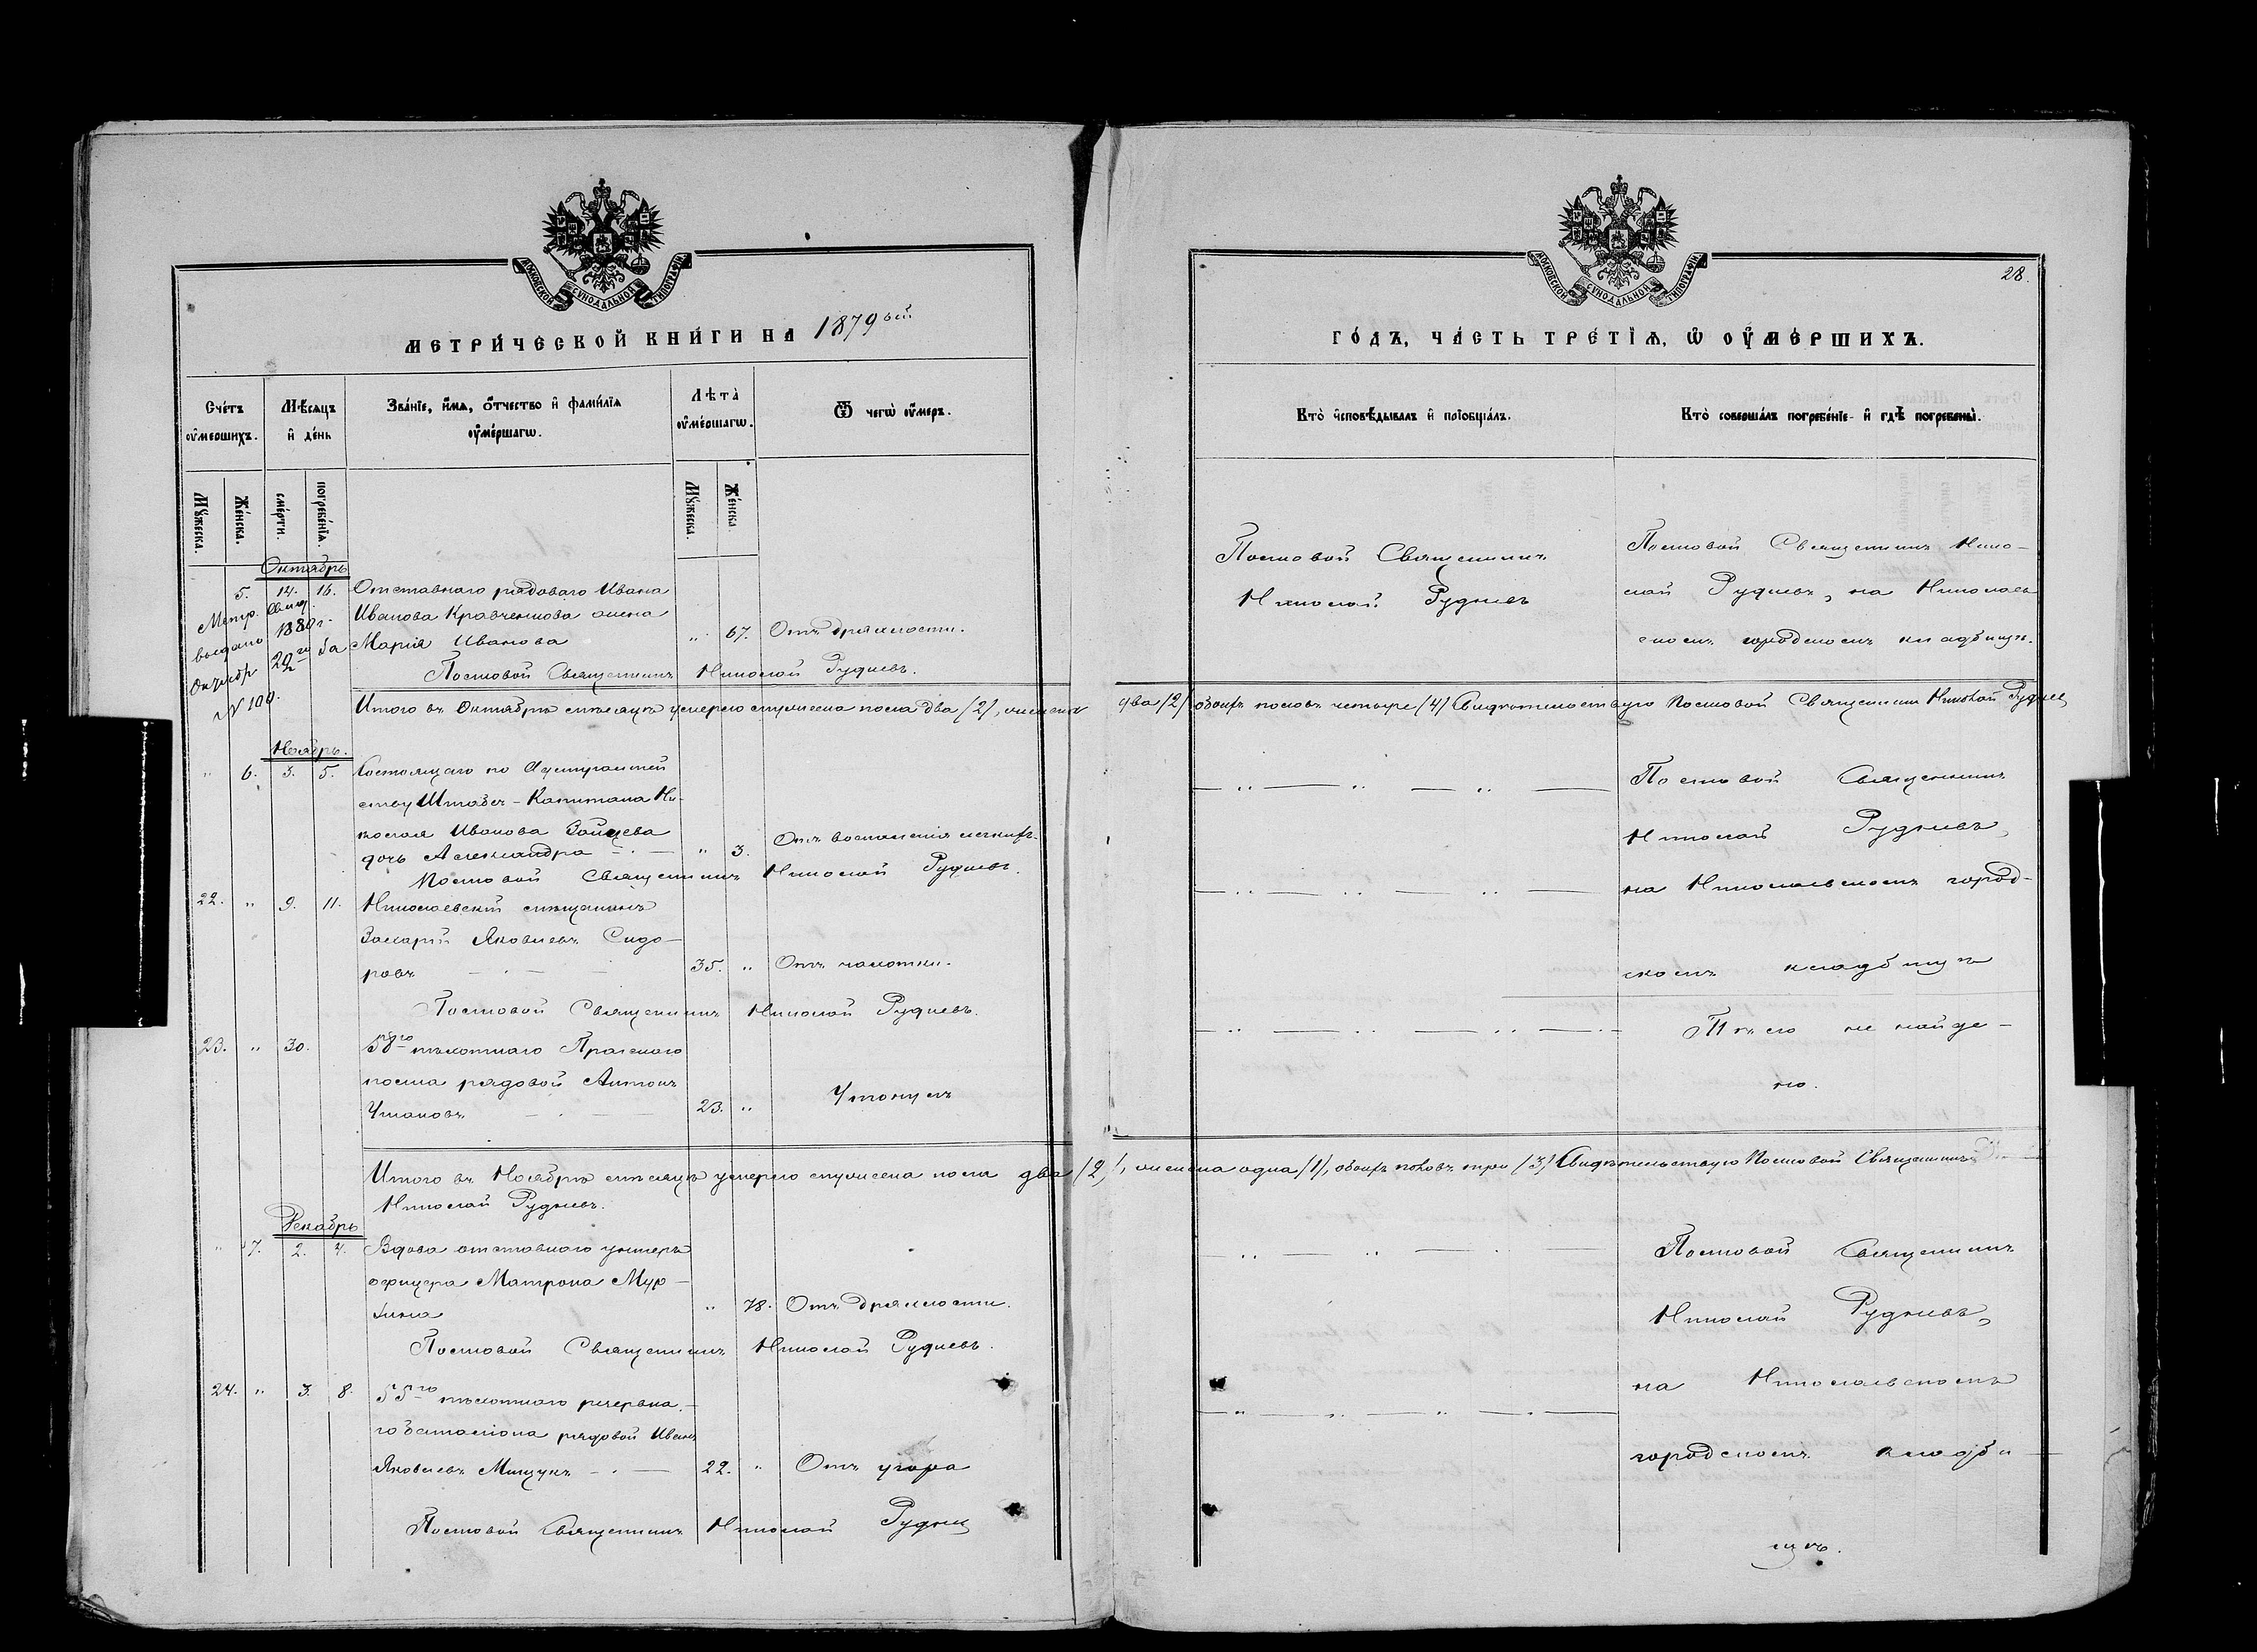 МОСКОВСКОЙ СУНОДАЛЬНОЙ ТИПОГРАФІИ
МЕТРИ́ЧЕСКОЙ КНИ́ГИ НА 1879 ый
Сче́тъ ᲂу҆ме́ршихъ.
Мѣ́сяцъ и҆ де́нь
Зва́нїе, и҆́мя, ѻ҆́тчество и҆ фамі́лїя ᲂу҆ме́ршагѡ.
Лѣ́та ᲂу҆ме́ршагѡ.
Ѿ чегѡ̀ ᲂу҆́меръ.
Мꙋ́жеска.
Же́нска.
сме́рти.
погребе́нїѧ.
Мꙋ́жеска.
Же́нска.
Октябрь
5. 14. 16. Отставнаго рядоваго Ивана
Иванова Кравченкова жена
Марія Иванова „ 67. Отъ дряхлости.
Метр. Свид.
выдано 1880 г.
Октябр 29го да
№ 100.
Постовой Священникъ Николай Рудневъ.
Итого въ Октябрѣ мѣсяцѣ умерло мужеска пола два /2/, женска
Ноябрь.
„ 6. 3. 5. Состоящаго по Адмиралтей
ству Штабсъ-Капитана Ни-
колая Иванова Зайцева
дочь Александра „ 3. Отъ воспаленія легкихъ.
Постовой Священникъ Николай Рудневъ.
22. „ 9. 11. Николаевскій мѣщанинъ
Захарій Яковлевъ Сидо-
ровъ 35. „ Отъ чахотки.
Постовой Священникъ Николай Рудневъ.
23. „ 30. 58го пѣхотнаго Прагскаго
полка рядовой Антонъ
Ушаковъ 23. „ Утонулъ
Итого въ Ноябрѣ мѣсяцѣ умерло мужеска пола два /2/
Николай Рудневъ.
Декабрь
„ 7. 2. 4. Вдова отставнаго унтеръ
офицера Матрона Мур-
78. Отъ дряхлости.
Постовой Священникъ Николай Рудневъ.
24. „ 3. 8. 55го пѣхотнаго резервна-
го баталіона рядовой Иванъ
Яковлевъ Мищукъ 22. „ Отъ угара
Постовой Священникъ Николай Руднев
МОСКОВСКОЙ СУНОДАЛЬНОЙ ТИПОГРАФІИ
28.
ГО́ДЪ, ЧА́СТЬ ТРЕ́ТЇѦ, Ѡ҆ ОУ҆МЕ́РШИХЪ.
Кто̀ и҆сповѣ́дывалъ и҆ прїѡбща́лъ.
Кто̀ соверша́лъ погребе́нїе и҆ гдѣ̀ погребены̀.
Постовой Священникъ
Николай Рудневъ
Постовой Священникъ Нико-
лай Рудневъ, на Николаев
скомъ городскомъ кладбищѣ.
два /2/ обоихъ половъ четыре /4/ Свидѣтельствую Постовой Священникъ Николай Руднев
Постовой Священникъ
Николай Рудневъ,
на Николаевскомъ город-
скомъ кладбищѣ
Тѣло не найде-
но.
, женска одна /1/, обоихъ половъ три /3/ Свидѣтельствую Постовой Священникъ
Постовой Священникъ
Николай Рудневъ,
на Николаевскомъ
городскомъ кладби
щѣ.